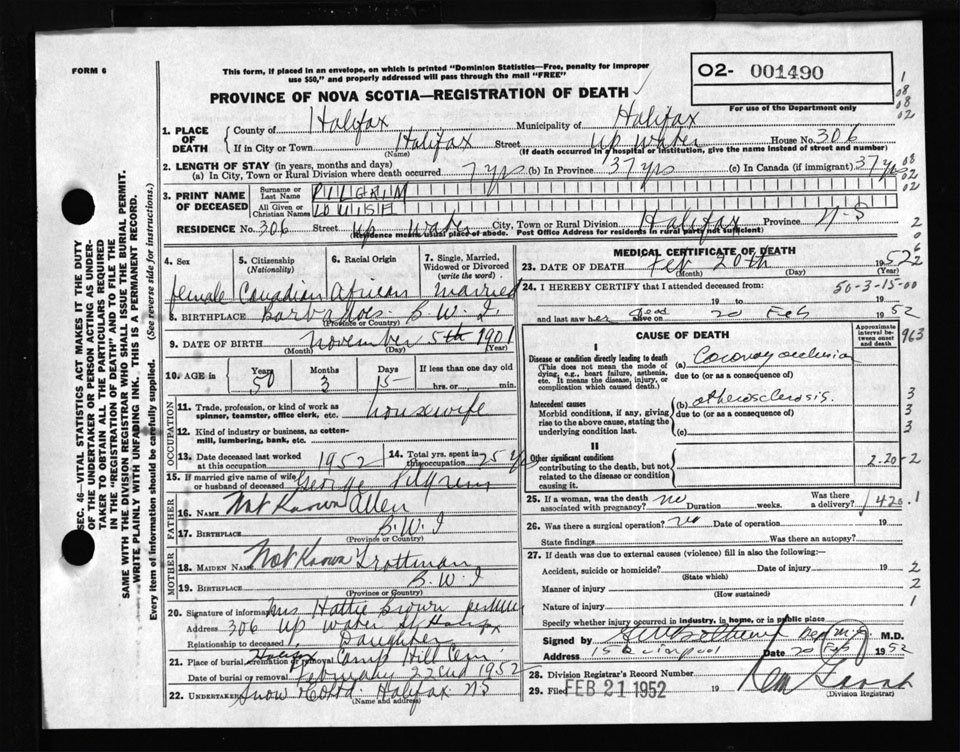 FORM 6
This form, if placed in an envelope, on which is printed "Dominion Statistics—Free, penalty for improper
use $50," and properly addressed will pass through the mail "FREE"
PROVINCE OF NOVA SCOTIA—REGISTRATION OF DEATH
02- 001490
For use of the Department only
1. PLACE OF DEATH
County of Halifax Municipality of Halifax
If in City or Town Halifax Street Up Water House No. 306
(Name) (If death occurred in a hospital or institution, give the name instead of street and number)
2. LENGTH OF STAY (in years, months and days)
(a) In City, Town or Rural Division where death occurred 7 yrs (b) In Province 37 yrs (c) In Canada (if immigrant) 37 yrs
3. PRINT NAME OF DECEASED
Surname or Last Name PILGRIM
All Given or Christian Names LOUISA
RESIDENCE No. 306 Street Up Water City, Town or Rural Division Halifax Province N-S
(Residence means usual place of abode. Post Office Address for residents in rural parts not sufficient)
4. Sex female
5. Citizenship (Nationality) Canadian
6. Racial Origin African
7. Single, Married, Widowed or Divorced (write the word) married
8. BIRTHPLACE Barbados B.W.I.
(Province or Country)
9. DATE OF BIRTH November 5th 1901
(Month) (Day) (Year)
10. AGE in Years 50 Months 3 Days 15 If less than one day old hrs. or min.
OCCUPATION
11. Trade, profession, or kind of work as spinner, teamster, office clerk, etc. housewife
12. Kind of industry or business, as cotten-mill, lumbering, bank, etc.
13. Date deceased last worked at this occupation 1952
14. Total yrs. spent in this occupation 25 yrs
15. If married give name of wife or husband of deceased George Pilgrim
FATHER
16. Name Not Known Allen
17. BIRTHPLACE B.W.I
(Province or Country)
MOTHER
18. MAIDEN NAME Not Known Trottman
19. BIRTHPLACE B.W.I
(Province or Country)
20. Signature of informant Mrs Hattie Brown
Address 306 Up Water St Halifax
Relationship to deceased Daughter
21. Place of burial, cremation or removal Camp Hill Cem
Date of burial or removal February 22nd 1952
22. UNDERTAKER Snow & Co Ltd. Halifax NS
(Name and address)
MEDICAL CERTIFICATE OF DEATH
23. DATE OF DEATH Feb 20th 1952
(Month) (Day) (Year)
24. I HEREBY CERTIFY that I attended deceased from:
50-3-15-00
19 to 19
and last saw her dead alive on 20 Feb 1952
CAUSE OF DEATH
Approximate interval between onset and death
I
Disease or condition directly leading to death (a) Coronary occlusion
(This does not mean the mode of dying, e.g., heart failure, asthenia, etc. It means the disease, injury, or complication which caused death.)
due to (or as a consequence of)
Antecedent causes (b) atherosclerosis.
Morbid conditions, if any, giving rise to the above cause, stating the underlying condition last.
due to (or as a consequence of)
(c)
II
Other significant conditions
contributing to the death, but not related to the disease or condition causing it.
2-20-2
25. If a woman, was the death associated with pregnancy? no Duration weeks. Was there a delivery? 420.1
26. Was there a surgical operation? no Date of operation 19
State findings Was there an autopsy?
27. If death was due to external causes (violence) fill in also the following:—
Accident, suicide or homicide? Date of injury 19
(State which)
Manner of injury
(How sustained)
Nature of injury
Specify whether injury occurred in industry, in home, or in public place
Signed by M.D.
Address 15 Quinpool Date 20 Feb 1952
28. Division Registrar's Record Number
29. Filed FEB 21 1952 19
(Division Registrar)
SEC. 46—VITAL STATISTICS ACT MAKES IT THE DUTY
OF THE UNDERTAKER OR PERSON ACTING AS UNDER-
TAKER TO OBTAIN ALL THE PARTICULARS REQUIRED
IN THE "REGISTRATION OF DEATH" AND TO FILE THE
SAME WITH THE DIVISION REGISTRAR WHO SHALL ISSUE THE BURIAL PERMIT.
WRITE PLAINLY WITH UNFADING INK. THIS IS A PERMANENT RECORD.
Every item of information should be carefully supplied. (See reverse side for instructions.)